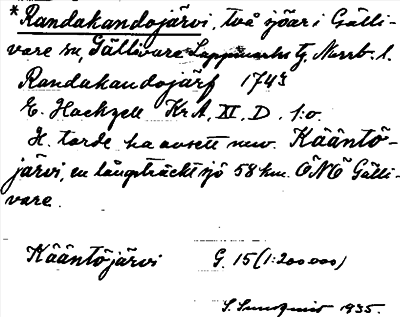 *Randakandojärvi, två sjöar i Gälli-
vare sn, Gällivare Lappmarks tg, Norrb. l.
Randakandojärf 1743
E. Hackzell KrA, XI, D. 1:o.
H. torde ha avsett nuv. Kääntö-
järvi, en långsträckt sjö 58 km. ÖNÖ Gälli-
vare.
Kääntöjärvi G. 15 (1:200 000)
S. Sundqvist 1935.